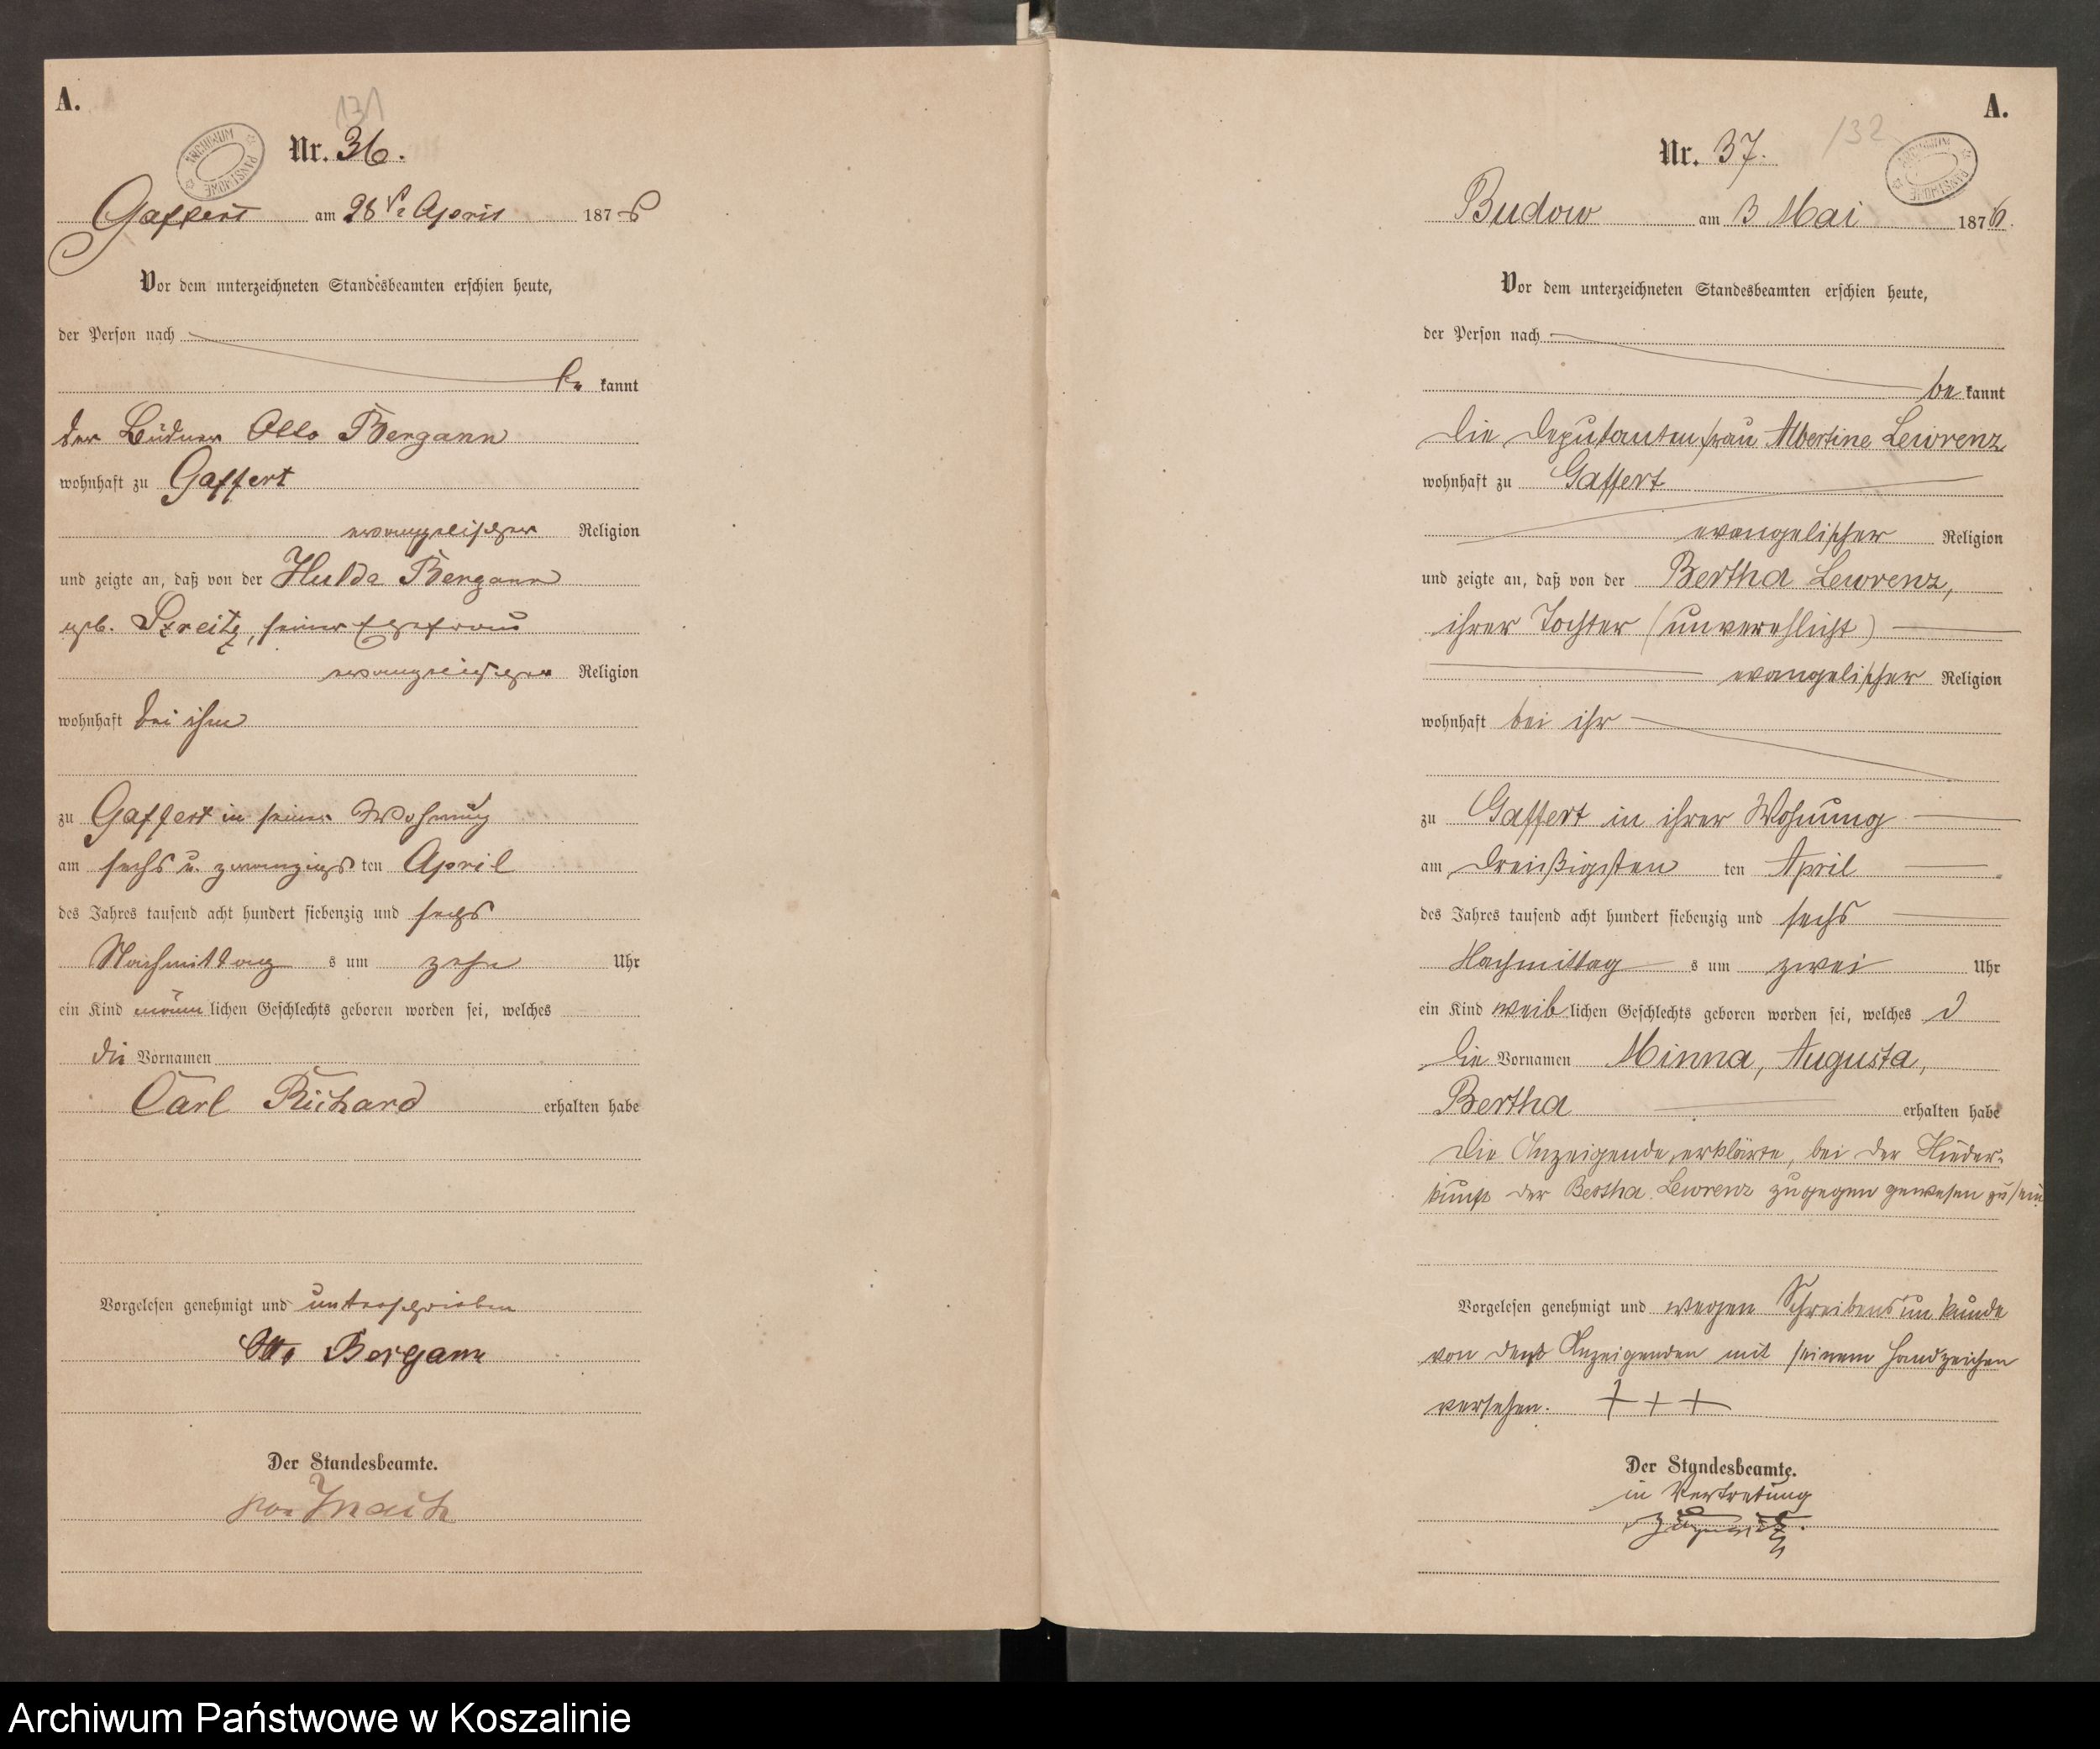 A.
131
ARCHIWUM PAŃSTWOWE
Nr. 36.
Gaffert am 28 April 1876
Vor dem unterzeichneten Standesbeamten erschien heute,
der Person nach
be kannt
der Büdner Otto Bergann
wohnhaft zu Gaffert
evangelischer Religion
und zeigte an, daß von der Hulda Bergann
geb. Streitz, seiner Ehefrau
evangelischer Religion
wohnhaft bei ihm
zu Gaffert in seiner Wohnung
am sechs u. zwanzigs ten April
des Jahres tausend acht hundert siebenzig und sechs
Nachmittag s um zehn Uhr
ein Kind männ lichen Geschlechts geboren worden sei, welches
die Vornamen
Carl Richard erhalten habe
Vorgelesen genehmigt und unterschrieben
Otto Bergann
Der Standesbeamte.
A.
132
ARCHIWUM PAŃSTWOWE
Nr. 37.
Budow am 3 Mai 1876.
Vor dem unterzeichneten Standesbeamten erschien heute,
der Person nach
be kannt
die Deputantenfrau Albertine Lewrenz
wohnhaft zu Gaffert
evangelischer Religion
und zeigte an, daß von der Bertha Lewrenz,
ihrer Tochter (unverehlicht)
evangelischer Religion
wohnhaft bei ihr
zu Gaffert in ihrer Wohnung
am dreißigsten ten April
des Jahres tausend acht hundert siebenzig und sechs
Nachmittag s um zwei Uhr
ein Kind weib lichen Geschlechts geboren worden sei, welches
die Vornamen Minna, Augusta,
Bertha erhalten habe
Die Anzeigende erklärte, bei der Nieder-
kunft der Bertha Lewrenz zugegen gewesen zu sein.
Vorgelesen genehmigt und wegen Schreibensunkunde
von dem Anzeigenden mit seinem Handzeichen
versehen. + + +
Der Standesbeamte.
in Vertretung
Archiwum Państwowe w Koszalinie